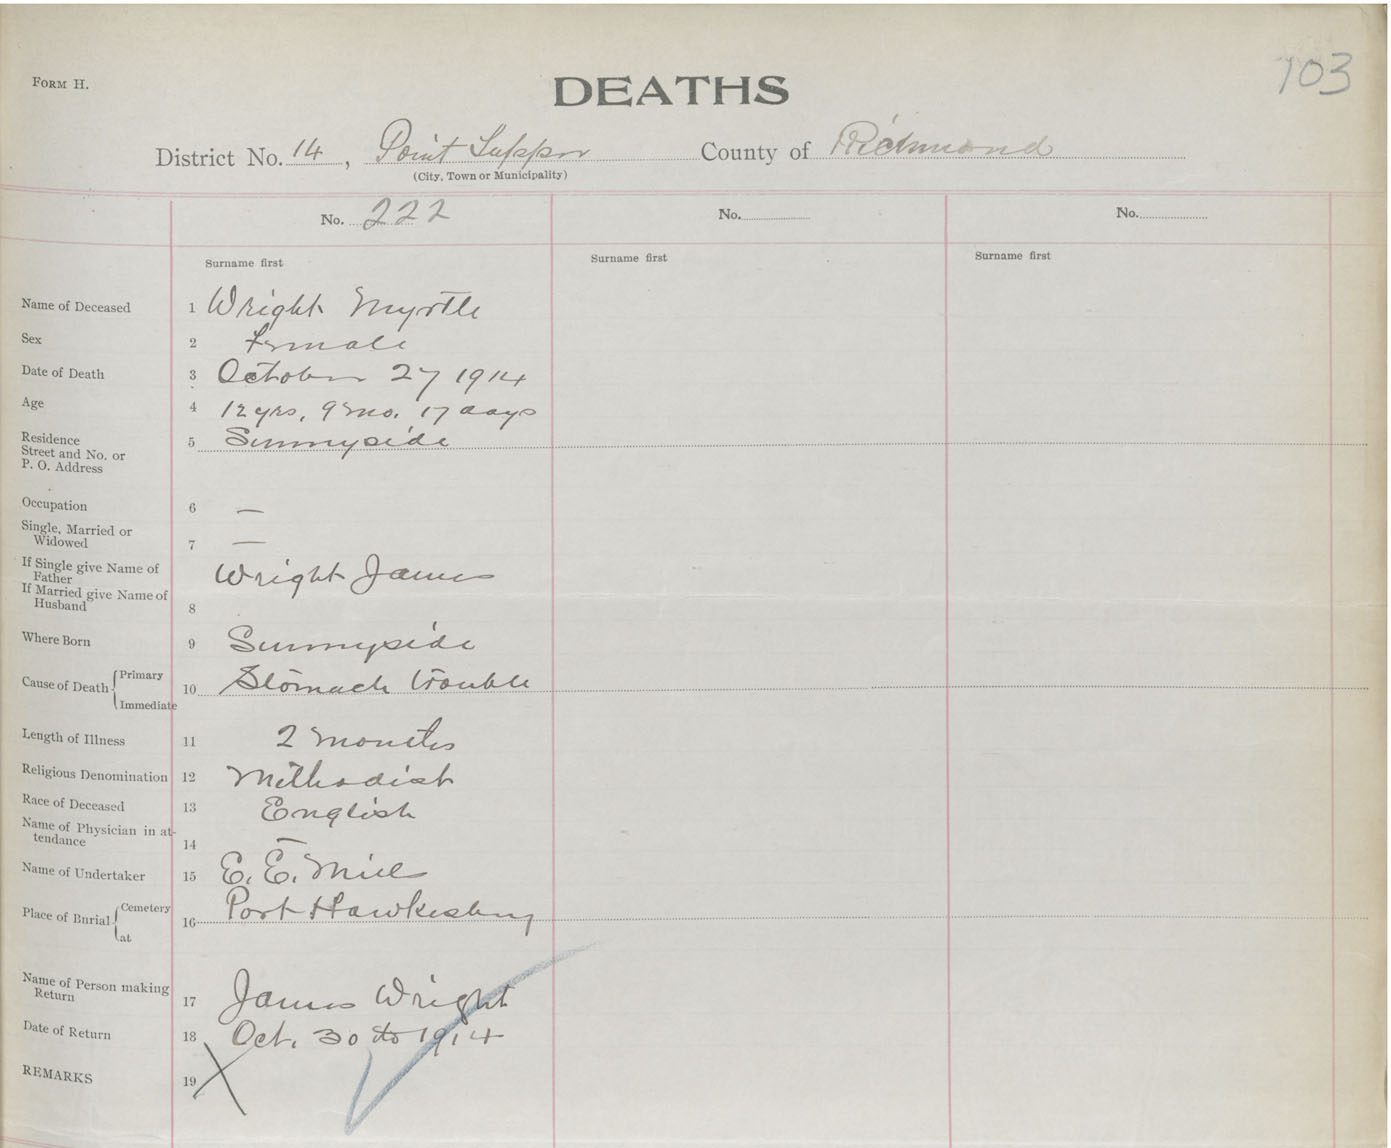 103
FORM H.
DEATHS
District No. 14, Point Tupper County of Richmond
(City, Town or Municipality)
No. 222 No. No.
Surname first Surname first Surname first
Name of Deceased 1 Wright Myrtle
Sex 2 Female
Date of Death 3 October 27 1914
Age 4 12 yrs, 9 mo. 17 days
Residence 5 Sunnyside
Street and No. or
P. O. Address
Occupation 6 —
Single, Married or
Widowed 7 —
If Single give Name of
Father Wright James
If Married give Name of
Husband 8
Where Born 9 Sunnyside
Cause of Death Primary
10 Stomach trouble
Immediate
Length of Illness 11 2 months
Religious Denomination 12 Methodist
Race of Deceased 13 English
Name of Physician in at-
tendance 14 —
Name of Undertaker 15 E. E.
Place of Burial Cemetery
16 Port Hawkesbury
at
Name of Person making
Return 17 James Wright
Date of Return 18 Oct. 30th 1914
REMARKS 19